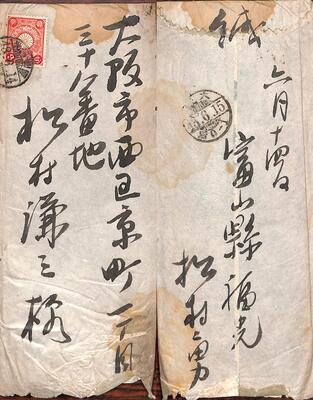 大阪市西区京町一丁目
三十八番地
松村謙三様
緘
六月十四日
富山縣福光
松村勇
6.15